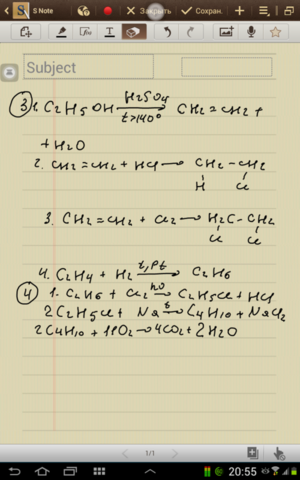 S Note
Закрыть
Сохран.
Subject
3 1. C2H5OH H2SO4 t>140° CH2=CH2+
+H2O
2. CH2=CH2 + HCl → CH2-CH2
H Cl
3. CH2=CH2 + Cl2 → H2C-CH2
Cl Cl
4. C2H4 + H2 t,Pt → C2H6
4 1. C2H6 + Cl2 hν → C2H5Cl + HCl
2C2H5Cl + Na t → C4H10 + NaCl2
2C4H10 + O2 → 4CO2 + 2H2O
1/1
20:55